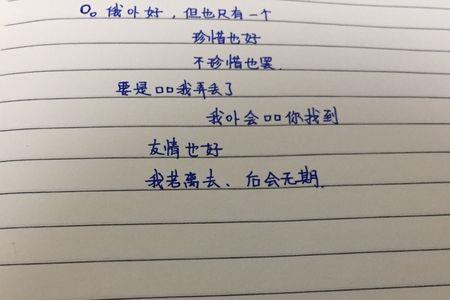 O。俄卟好，但也只有一个
珍惜也好
不珍惜也罢.
要是口口我弄丢了
我卟会口口你找到
友情也好
我若离去、后会无期.